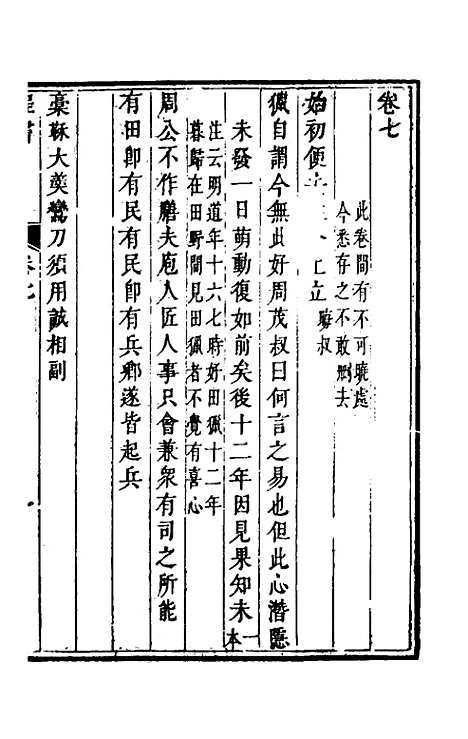 卷七
此卷間有不可曉處
今悉存之不敢刪去
始初便
上立
獵自謂今無此好周茂叔曰何言之易也但此心潛隱
未發一日萌動復如前矣後十二年因見果知未
一本
注云明道年十六七時好田獵十二年
暮歸在田野間見田獵者不覺有喜心
周公不作膳夫庖人匠人事只會兼衆有司之所能
有田卽有民有民卽有兵鄉遂皆起兵
稾鞂大羹鸞刀須用誠相副
卷七